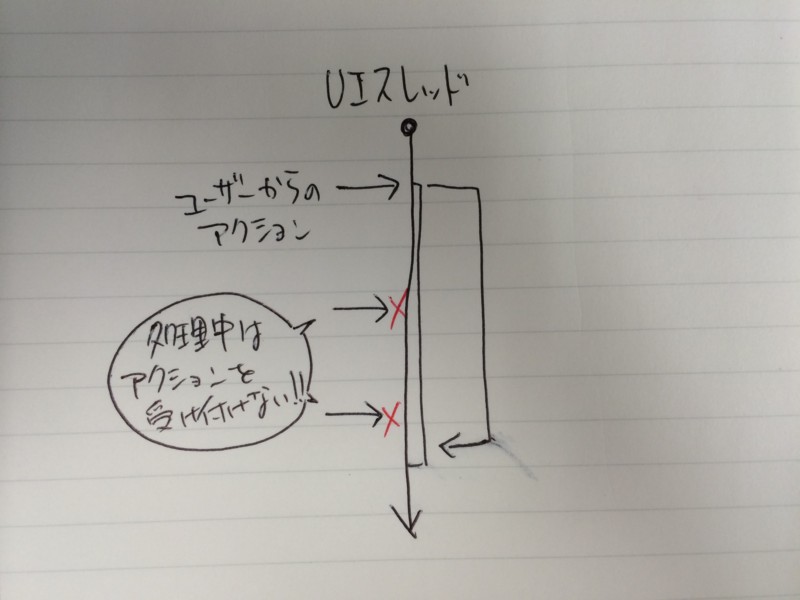 UIスレッド
ユーザーからの
アクション
処理中は
アクションを
受け付けない!!